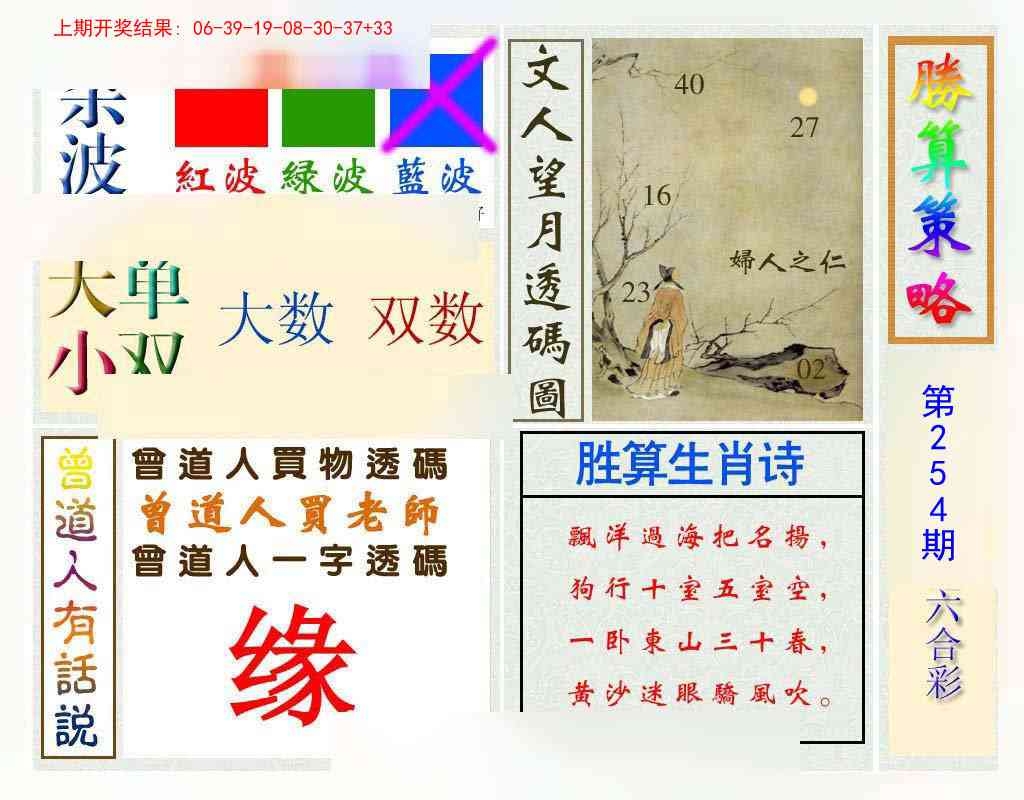 上期开奖结果: 06-39-19-08-30-37+33
波
紅波 緑波 藍波
大单
小双
大数 双数
文人望月透碼圖
40
27
16
婦人之仁
23
02
勝算策略
第254期
六合彩
曾道人有話説
曾道人買物透碼
曾道人買老師
曾道人一字透碼
缘
胜算生肖诗
飄洋過海把名揚，
狗行十室五室空，
一卧東山三十春，
黄沙迷眼驕風吹。